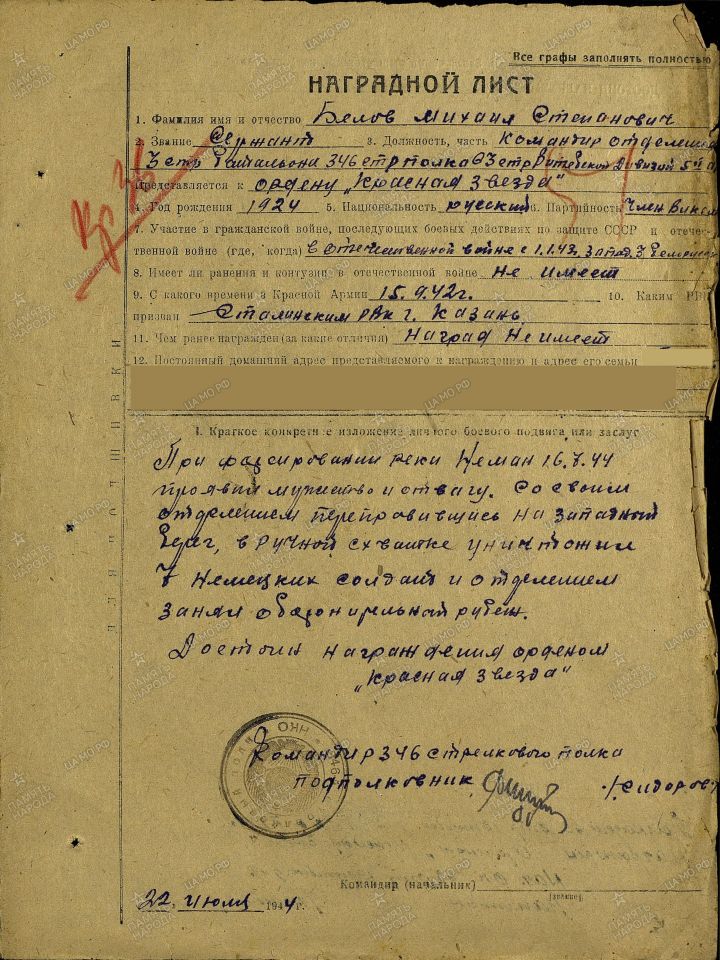 Все графы заполнять полностью
НАГРАДНОЙ ЛИСТ
1. Фамилия имя и отчество Белов Михаил Степанович
2. Звание Сержант 3. Должность, часть Командир отделения
346 стр полка 5й
Представляется к ордену „Красная Звезда"
4. Год рождения 1924 5. Национальность русский 6. Партийность Член
7. Участие в гражданской войне, последующих боевых действиях по защите СССР и отече-
ственной войне (где, когда) в отечественной войне с
8. Имеет ли ранения и контузии в отечественной войне Не имеет
9. С какого времени в Красной Армии 15.9.42г. 10. Каким РВК
призван Сталинским рвк г. Казань
11. Чем ранее награжден (за какие отличия) Наград Не имеет
12. Постоянный домашний адрес представляемого к награждению и адрес его семьи
I. Краткое конкретное изложение личного боевого подвига или заслуг
При форсировании реки Неман 16.7.44
проявил мужество и отвагу. Со своим
отделением переправившись на западный
берег, в ручной схватке уничтожил
7 немецких солдат и отделением
занял оборонительный рубеж.
Достоин награждения орденом
„Красная Звезда"
Командир 346 стрелкового полка
подполковник Сидоров
Командир (начальник)
22 июля 1944 г.
ДЛЯ ПОДШИВКИ
НКО
ПАМЯТЬ НАРОДА
ЦАМО.РФ